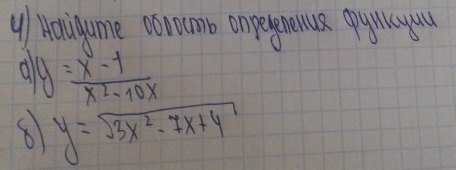 4) Найдите область определения функции
а) y = x - 1 / x² - 10x
б) y = √3x² - 7x + 4